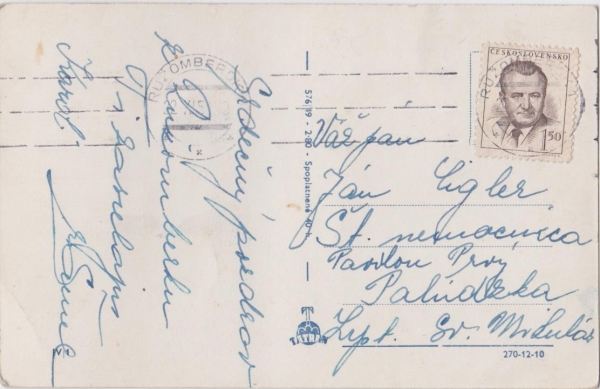 Srdečný pozdrav
z Ružomberku
Karol
RUŽOMBEROK
576/19 - 2/80 - Spoplatnené 40 h
ČESKOSLOVENSKO
1.50
Váž pán
Ján Cigler
Št. nemocnica
Pavilon Prvý
Palúdzka
Lypt. Sv. Mikuláš
270-12-10